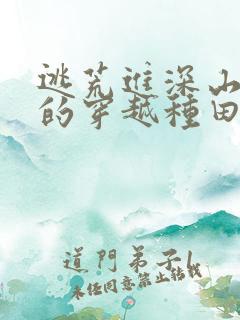 逃荒進深山
的穿越種田
道門弟子1
未经同意禁止转载